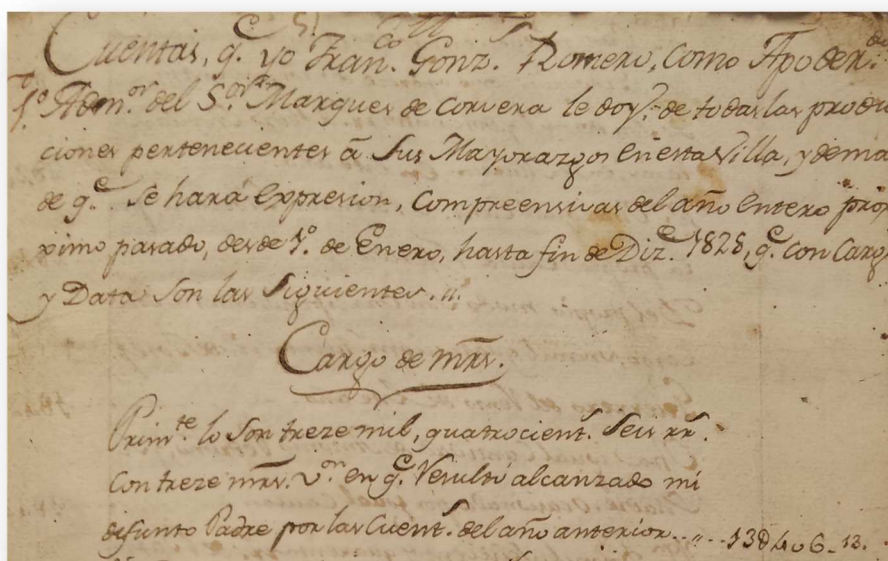 Cuentas, q.e yo Fran.co Gonz.s Romero, como Apoder.do
y Adm.or del S.or Marques de Corvera le doy, de todas las produc
ciones pertenecientes â sus Mayorazgos en esta Villa, y dema
de q.e se hará expresion, compreensivas del año entero pró
ximo pasado, desde 1.o de Enero, hasta fin de Diz.e 1828, q.e con Cargo
y Data son las siguientes. //.
Cargo de mrs.
Prim.te lo son treze mil, quatrocient.s seis rr.s
con treze mrs. v.on en q.e resultó alcanzado mi
difunto Padre por las Cuent.s del año anterior..,,.. 13D406-13.